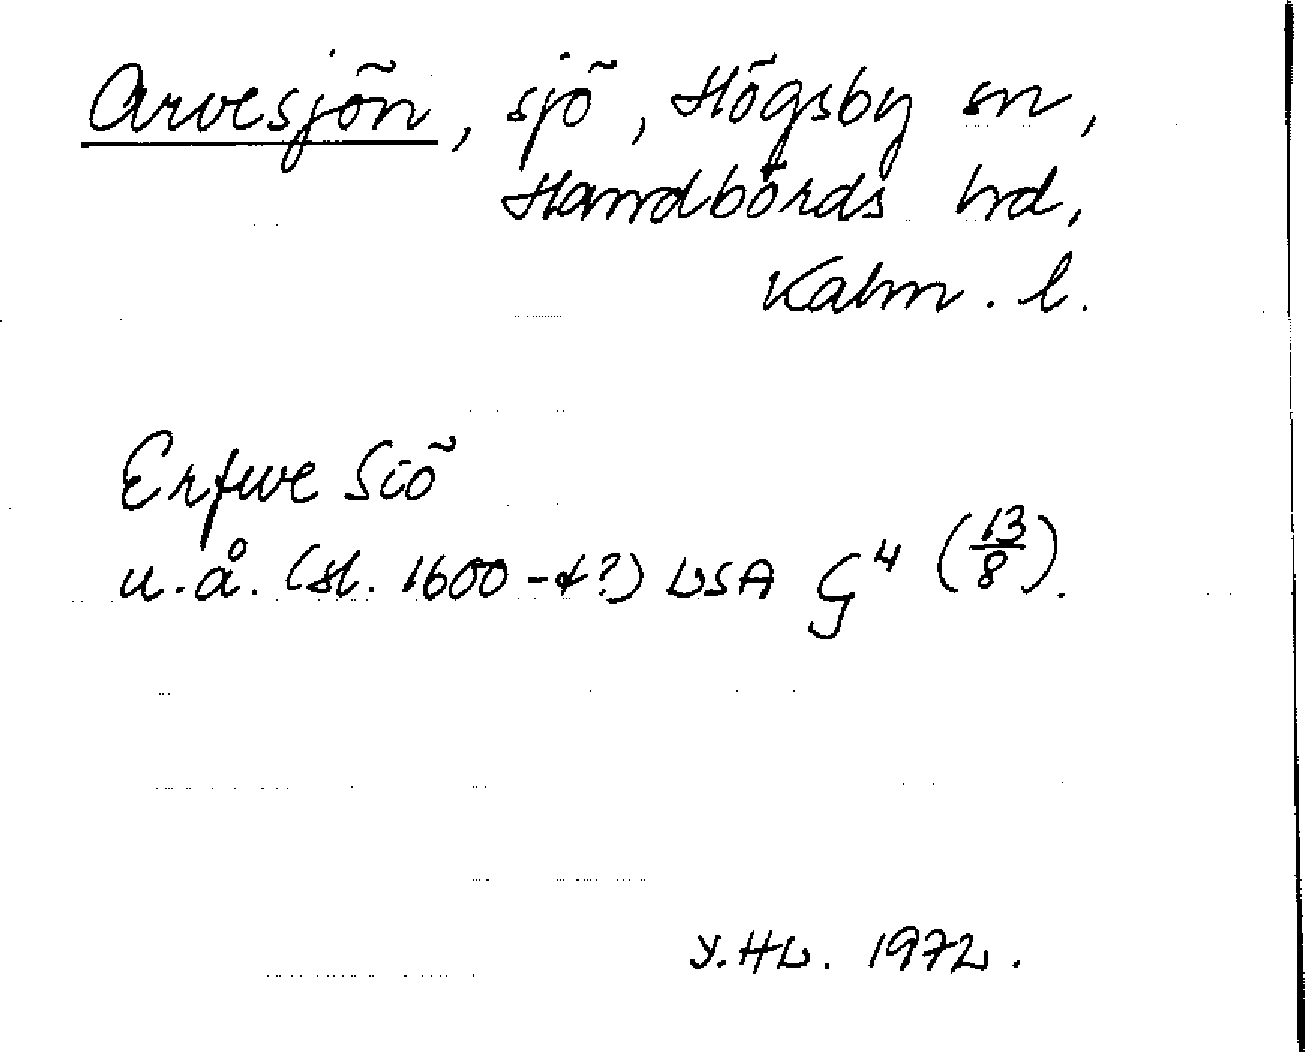 Arvesjön, sjö, Högsby sn,
Handbörds hd,
Kalm. l.
Erfwe Siö
u.å. (sl. 1600-t?) LSA G⁴ (13/8).
Y.HL. 1972.